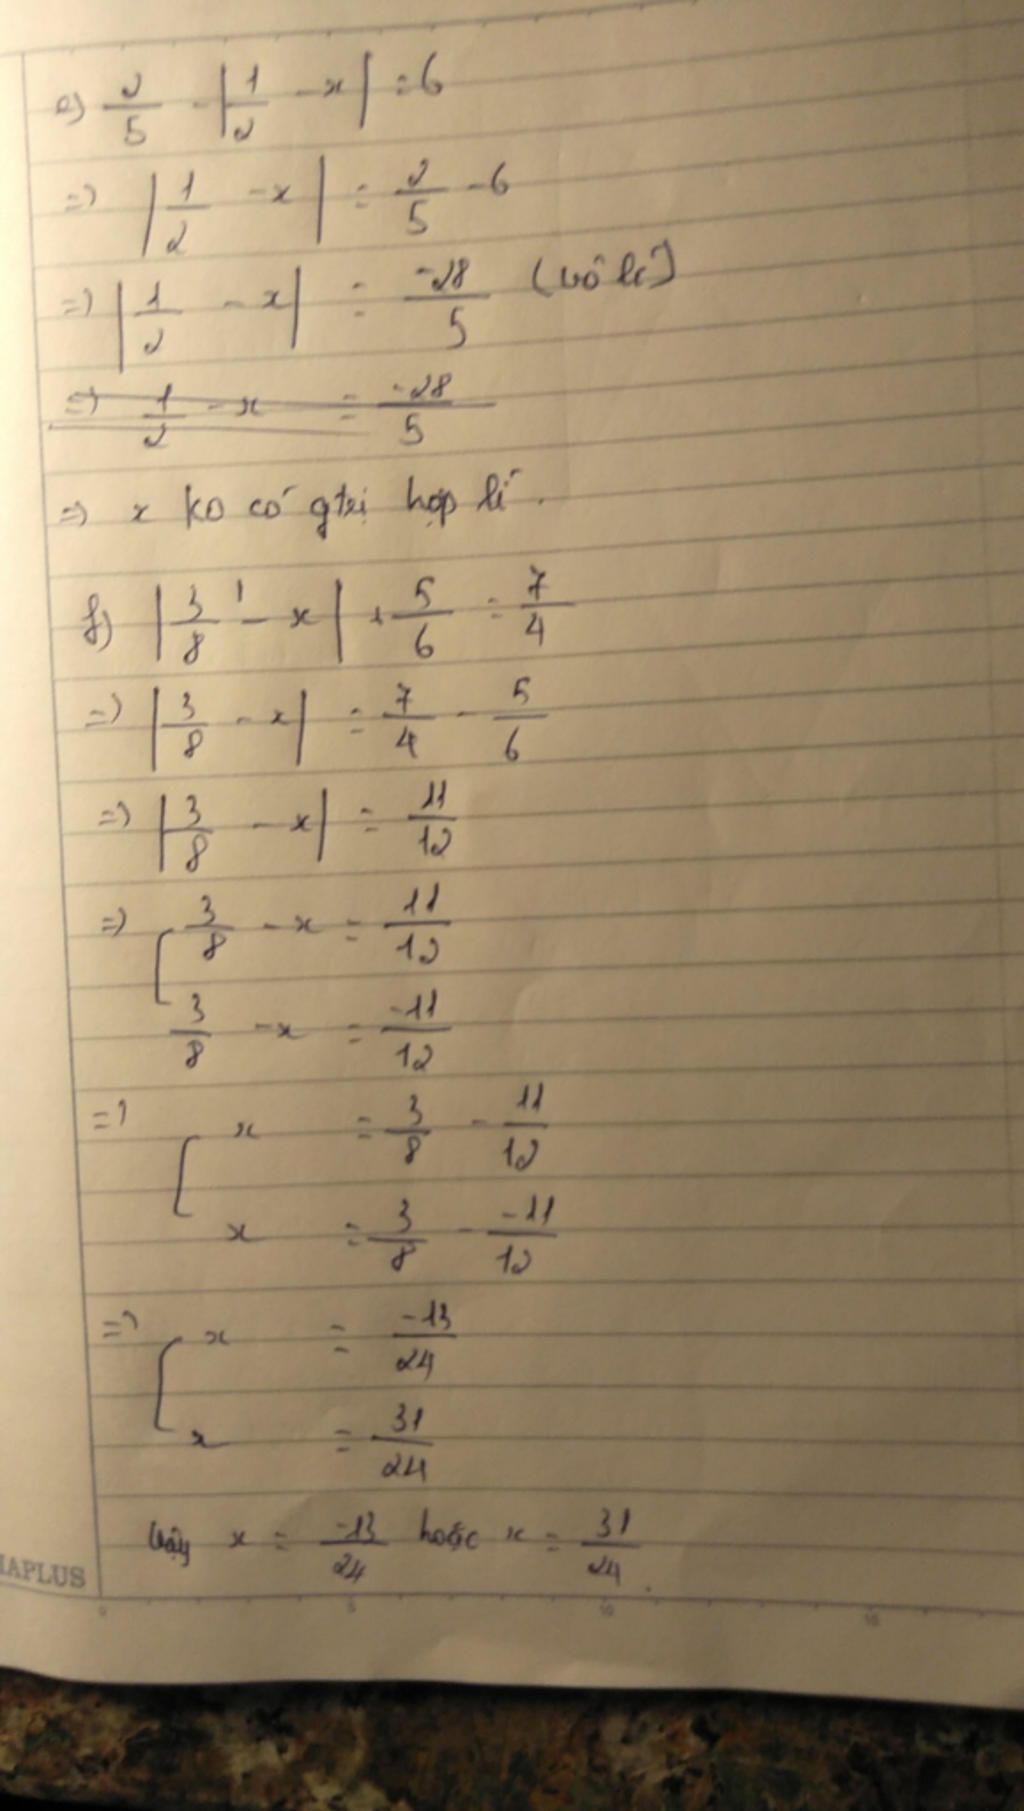 e) 2/5 - |1/2 - x| = 6
=) |1/2 - x| = 2/5 - 6
=) |1/2 - x| = -28/5 (vô lí)
=) 1/2 - x = -28/5
=) x ko có gtrị hợp lí.
f) |3/8 - x| + 5/6 = 7/4
=) |3/8 - x| = 7/4 - 5/6
=) |3/8 - x| = 11/12
=) [ 3/8 - x = 11/12
3/8 - x = -11/12
=) [ x = 3/8 - 11/12
x = 3/8 - -11/12
=) [ x = -13/24
x = 31/24
Vậy x = -13/24 hoặc x = 31/24.
APLUS
0 5 10 15